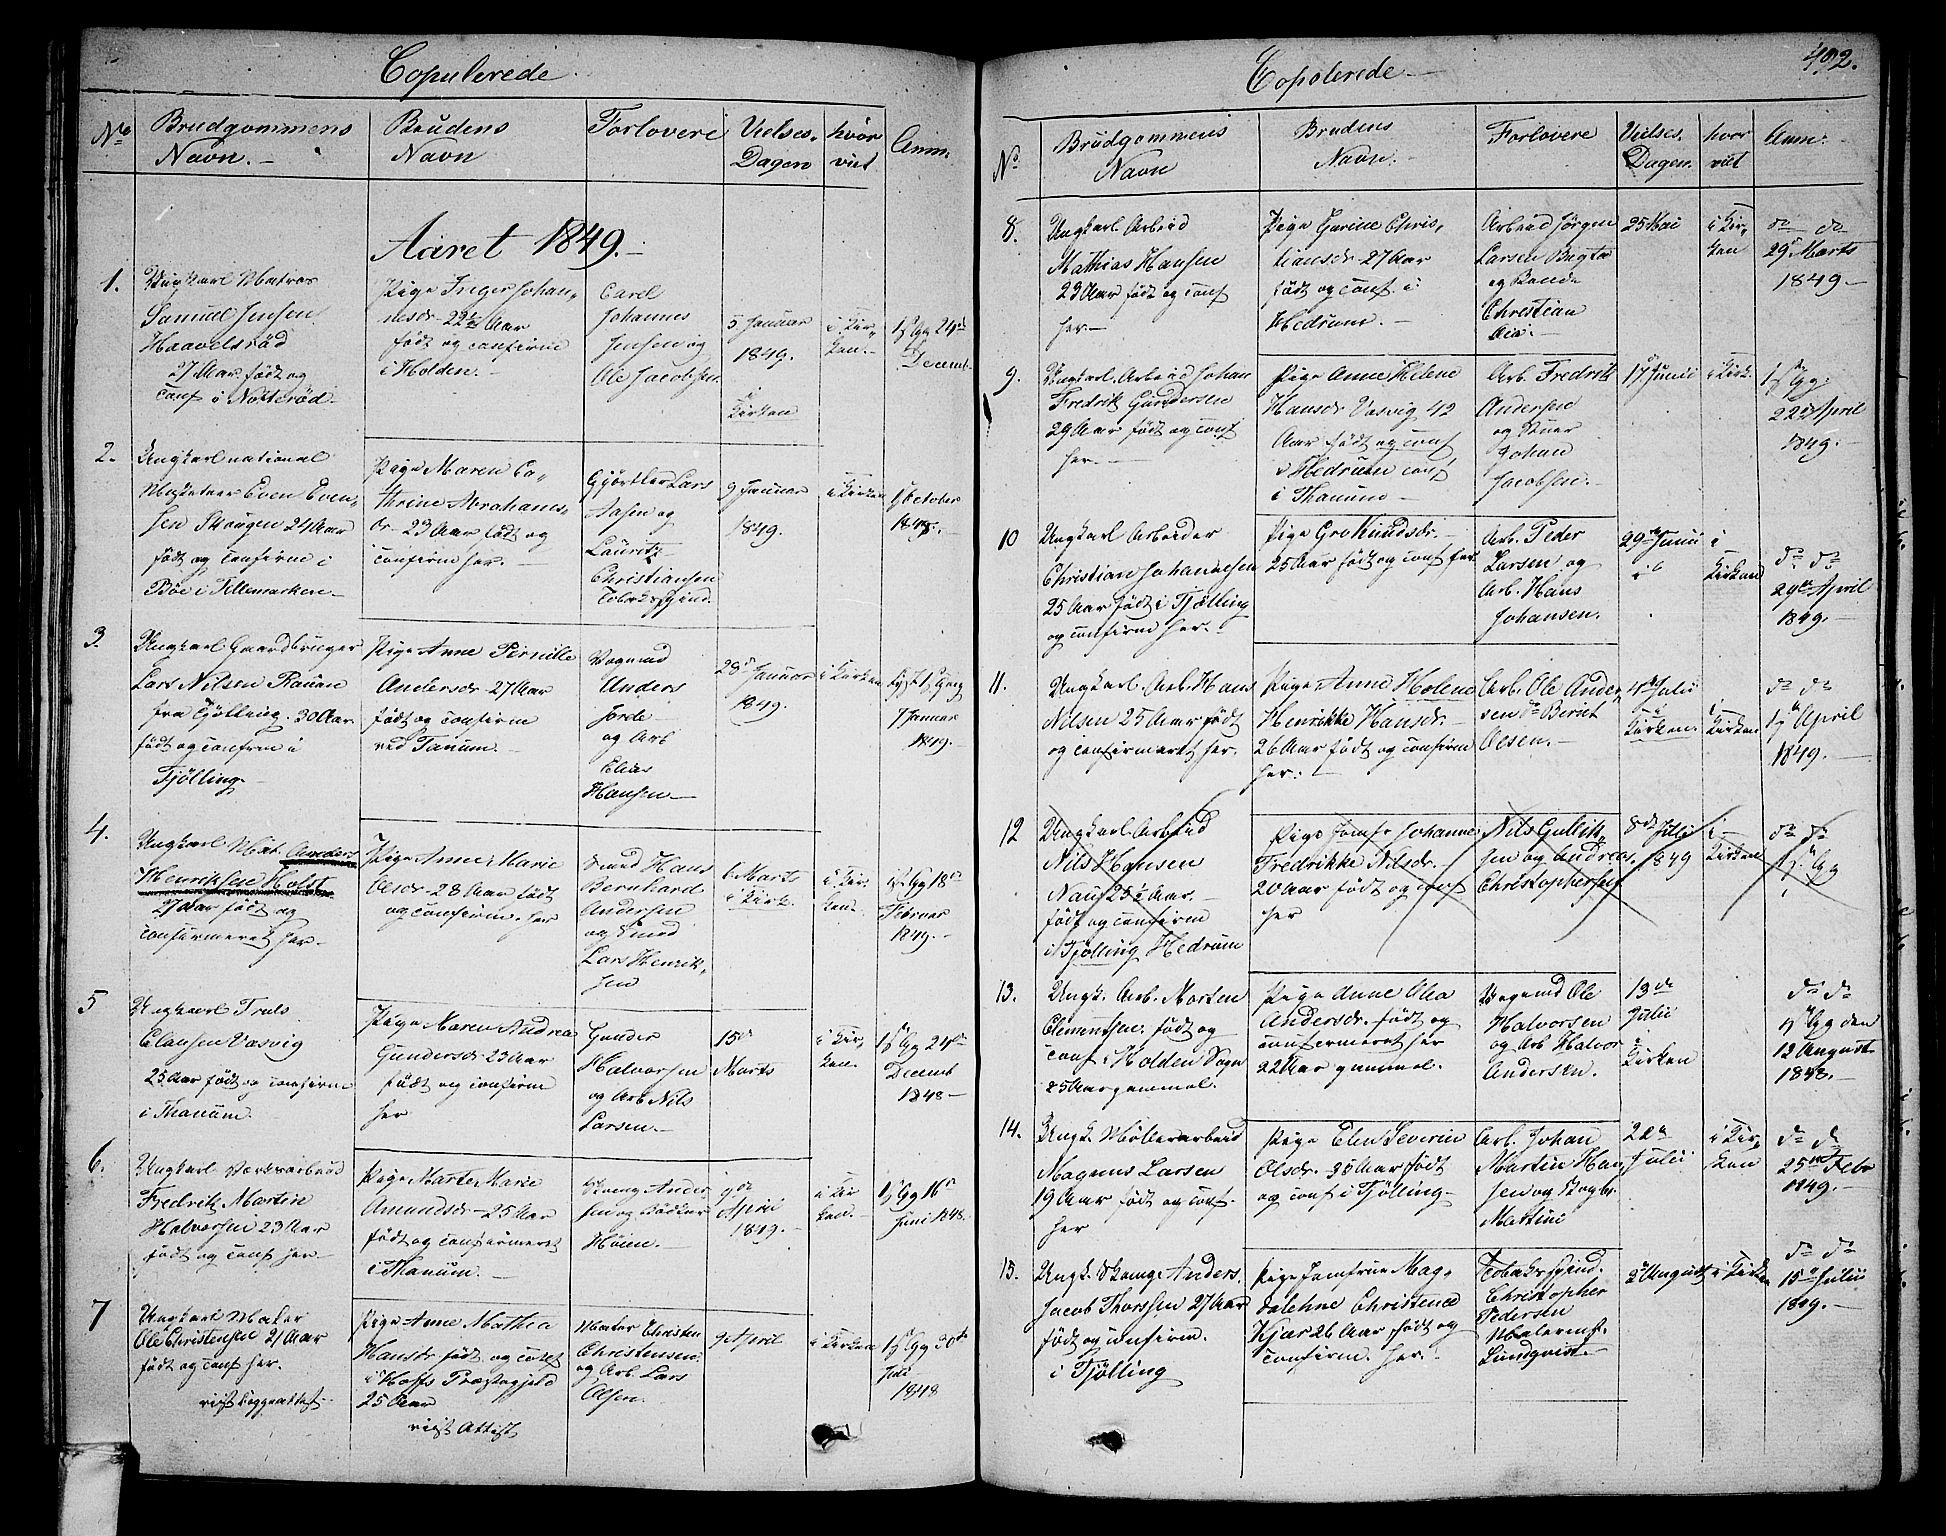 Copulerede.
No Brudgommens Navn. Brudens Navn Forlovere Vielses Dagen hvor viet Anm:
Aaret 1849.
1. Ungkarl Matros
Samuel Jensen
Haavelsröd
27 Aar født og
Conf i Nötteröd.
Pige Inger Johan-
nesdr 22½ Aar
født og confirm
i Holden.
Carel
Johannes
Jensen og
Ole Jacobsen
5 Januar
1849.
i
Kirken
i Kir-
ken.
24de
Decemb.
2. Ungkarl national
Even Even-
sen Skougen 24 Aar
født og confirm i
Böe i Tillemarken.
Pige Maren Ca-
thrine Abrahams-
dr 23 Aar født og
confirm her.
Gjörtler Lars
Aasen og
Lauritz
Christiansen
Tobaksspind.
9 Januar
1849.
i Kirken
October
3. Ungkarl Gaardbruger
Lars Nilsen Rauan
fra Tjölling. 30 Aar
født og confirm i
Tjölling.
Pige Anne Pernille
Andersdr 27 Aar
født og confirm
ved Tanum.
Vognmd
Anders
Jorde
og Arb
Elias
Hansen.
28de Januar
1849.
i Kirken
7 Januar
1849.
4. Ungkarl Mat. Anders
Henriksen Holst
27 Aar født og
confirmeret her.
Pige Anne Marie
Olsdr 28 Aar født
og confirm. her
Smed Hans
Bernhard
Andersen
og Smed
Lars Henrik-
sen
6 Marts
i Kirk.
i Kir-
ken.
18de
Februar
1849.
5 Ungkarl Truls
Clausen Vasvig
25 Aar født og confirm
i Thanum.
Pige Maren Andrea
Gundersdr 23 Aar
født og confirm
her
Gunder
Halvorsen
og Arb Nils
Larsen.
15de
Marts
i Kir-
ken.
24de
Decemb
1848
6. Ungkarl Værksarbeid
Fredrik Martin
Halvorsen 23 Aar
født og conf her
Pige Marte Marie
Amundsdr 25 Aar
født og confirmeret
i Thanum.
Anders
sen og Bödker
Höien.
9de
April
1849.
i Kir
ken.
16de
Juni 1848.
7 Ungkarl Maler
Ole Christensen 21 Aar
født og conf her.
Pige Anne Mathea
Hansdr født og conf
i Hoffs Præstegjeld
25 Aar
vist Attest
Maler Christen
Christensen
og Arb. Lars
Olsen.
9 April
i Kirken
30te
1848
Copolerede
492.
No. Brudgommens Navn Brudens Navn. Forlovere Vielses Dagen. hvor viet Anm:
8. Ungkarl Arbeid
Mathias Hansen
23 Aar født og conf
her.
Pige Gurine Chris-
tiansdr 27 Aar
født og conf. i
Hedrum.
Arbeid Jörgen
Larsen Bugta
og Bonde
Christian
Oia.
25 Mai
i Kir-
ken
do do
29de Marts
1849.
9. Ungkarl. Arbeid Johan
Fredrik Gundersen
29 Aar født og conf
her.
Pige Anne Helene
Hansdr Vasvig 42
Aar født og conf
i Hedrum conf
i Thanum
Arb. Fredrik
Andersen
og
Johan
Jacobsen.
17de Junii
i Kirk.
22de April
1849.
10 Ungkarl Arbeider
Christian Johannesen
25 Aar født i Tjølling
og confirm her.
Pige Gro Knudsdr.
25 Aar født og conf her
Arb. Peder
Larsen og
Arb. Hans
Johansen.
29de Junii
i
Kirken
do do
29de April
1849.
11. Ungkarl. Arb. Hans
Nilsen 25 Aar født
og confirmeret her.
Pige Anne Helene
Henrikke Hansdr.
26 Aar født og confirm
her.
Arb. Ole Ander-
sen do Beriet
Olsen.
4de Julii
i
Kirken.
i
Kirken
do do
April
1849.
12 Ungkarl Arbeid
Nils Hansen
Naust 25½ Aar.
født og confirm
i Tjølling Hedrum
Pige Jomfr Johanne
Fredrikke Nilsdr.
20 Aar født og conf
her
Nils Gullik-
sen og Andreas
Christophersen
8de Julii
1849
i
Kirken
do do
13. Ungk. Arb. Morten
Clementsen. født og
Conf. i Holden Sogn
25 Aar gammel.
Pige Anne Olea
Andersdr. født og
confirmeret her
22 Aar gammel.
Vognmd Ole
Halvorsen
og Arb Halvor
Andersen.
13de
Julii
i
Kirken
do do
den
12 August
1848.
14. Ungk. Møllerarbeid
Magnus Larsen
19 Aar født og conf.
her
Pige Elen Severin
Olsdr. 35 Aar født
og conf i Tjølling
Arb. Johan
Martin Han-
sen og Bogb.
Martini
22de
Julii
i Kir-
ken
do do
25de Febr
1849.
15. Ungk. Anders.
Jacob Thorssen 27 Aar
født og confirm.
i Tjølling
Pige Jomfrue Mag-
dalehne Christence
Kjær 26 Aar født og
confirm. her.
Tobaksspind.
Christopher
Pedersen
Malermst.
Lundqvist.
2de August
i Kirken
do do
15de Julii
1849.